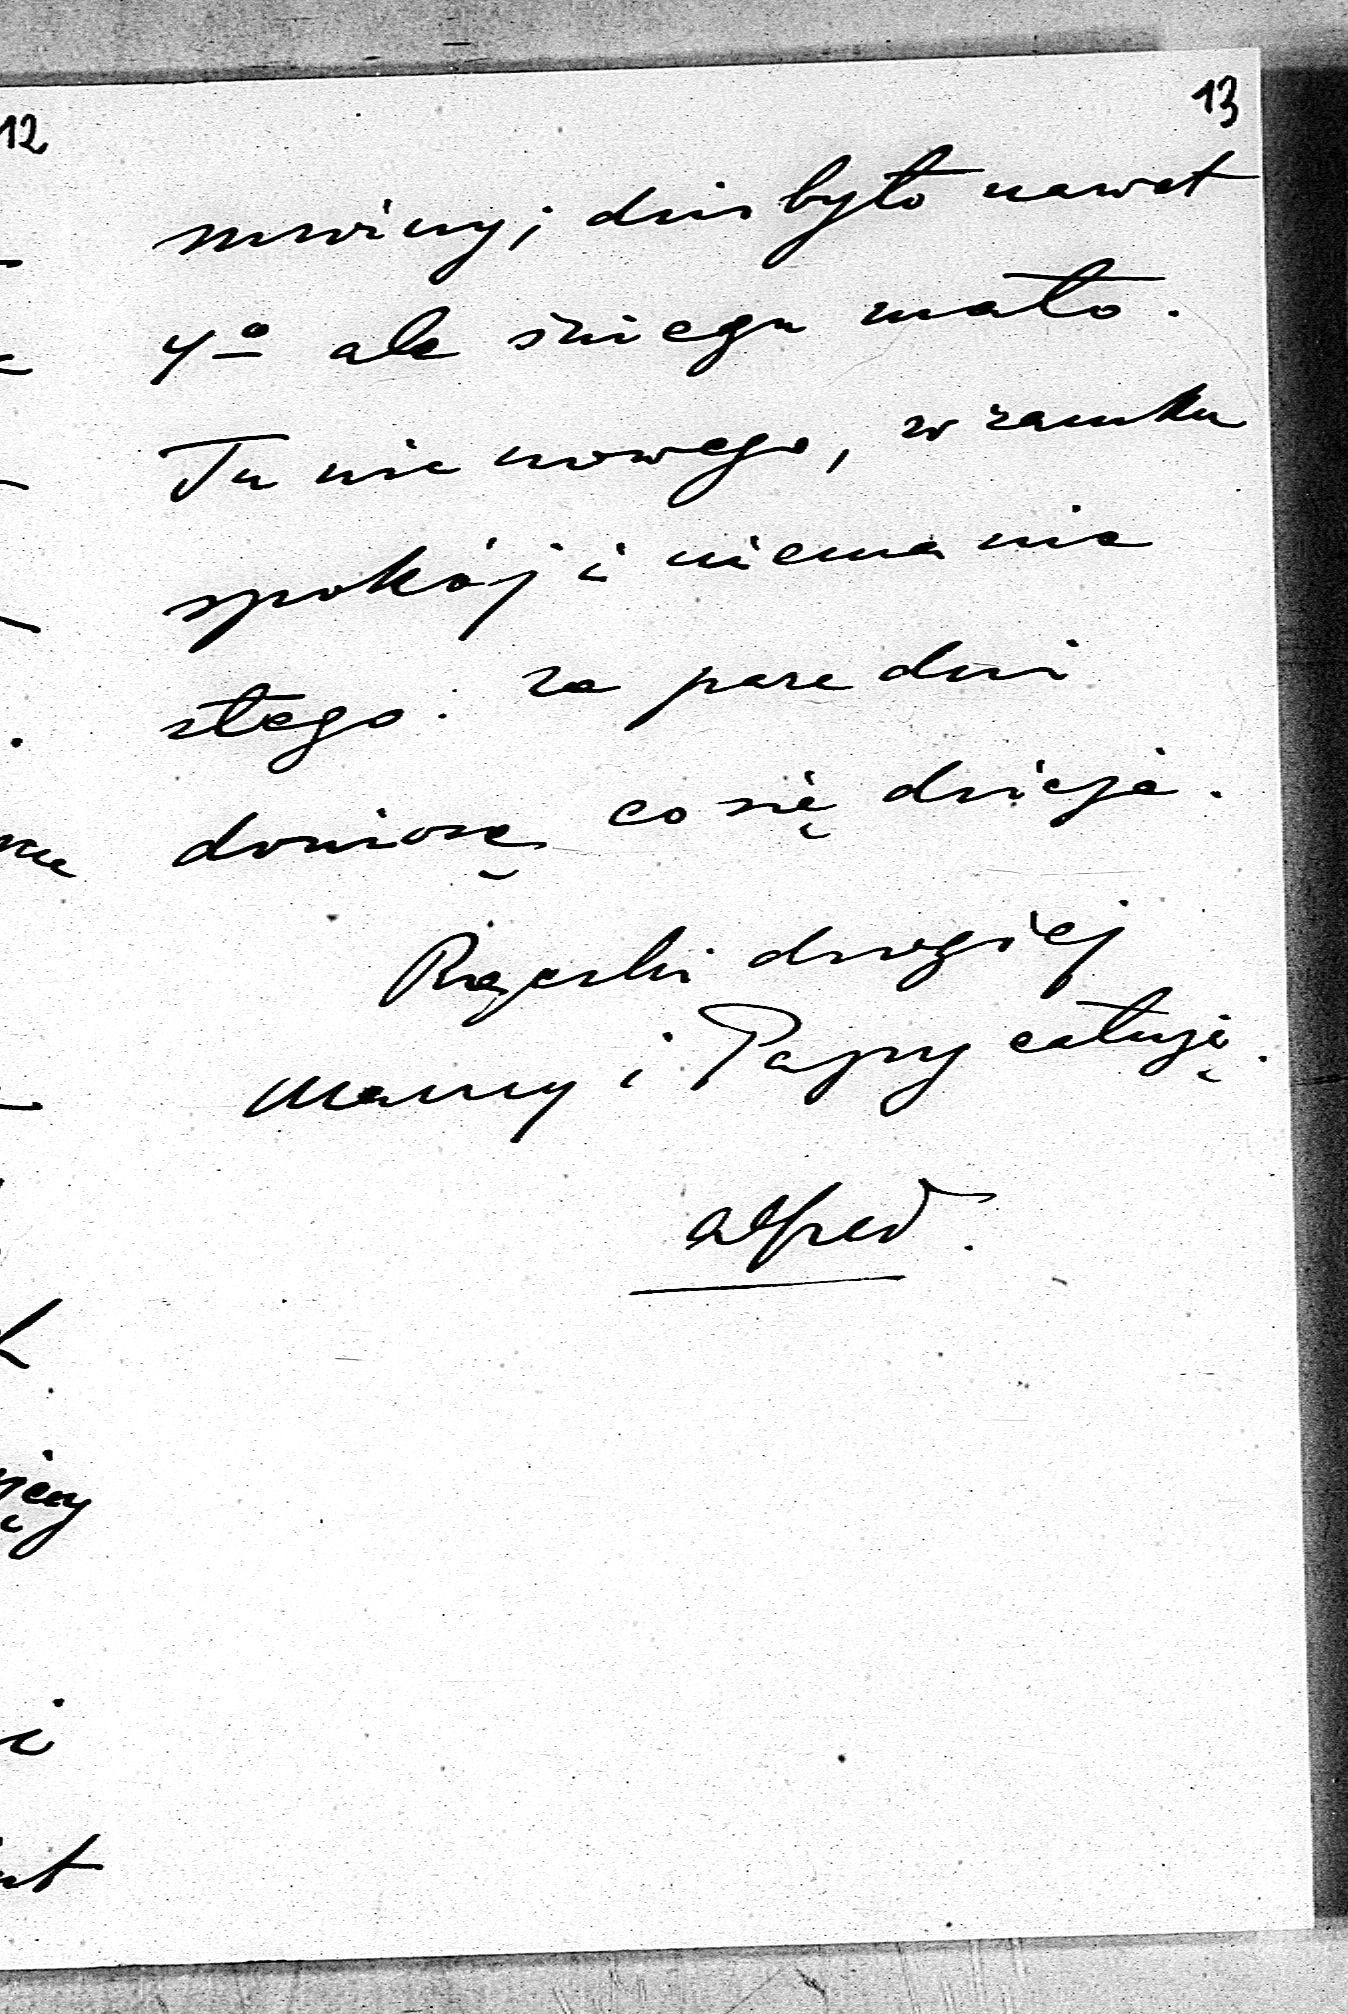 12
13
mrozimy; dziś było nawet
4° ale śniegu mało.
Tu nic nowego, w zamku
spokój i niema nic
złego. Za pare dni
doniosę co się dzieje.
Rączki drogiej
Mamy i Papy całuję.
Alfred.